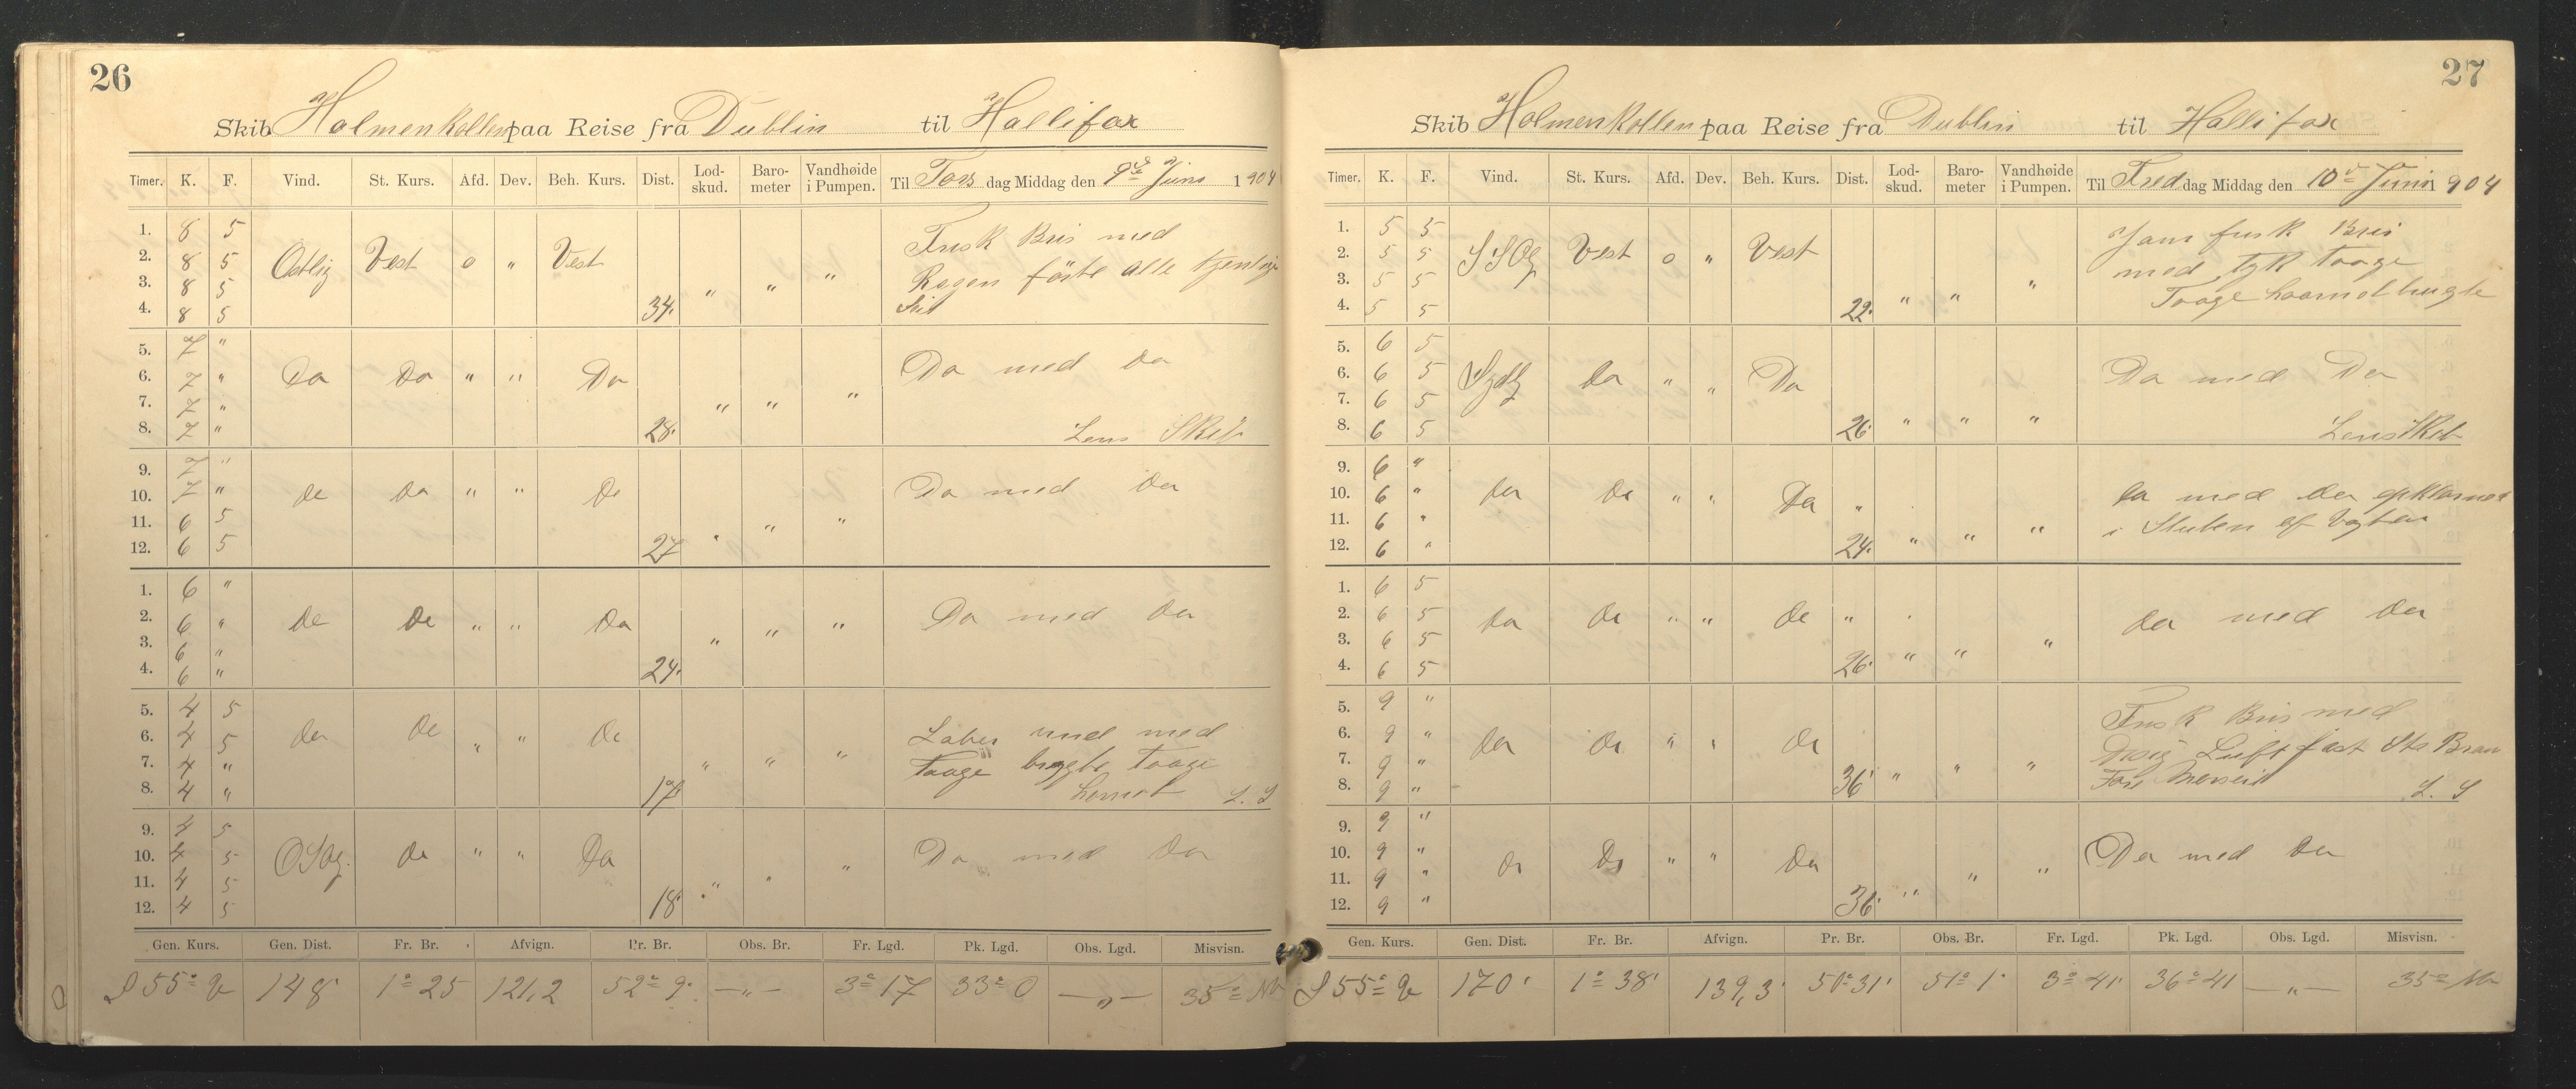 26
Skib Holmenkollen paa Reise fra Dublin til Hallifax
Timer. K. F. Vind. St. Kurs. Afd. Dev. Beh. Kurs. Dist. Lod-skud. Baro-meter Vandhøide i Pumpen. Til Tors dag Middag den 9de Juni 1904
1. 8 5 Frisk Bris med
2. 8 5 Østlig Vest 0 " Vest Regen förte alle tjenlige
3. 8 5 " " "
4. 8 5 34. Seil
5. 7 "
6. 7 " Do Do " " Do Do med Do
7. 7 " " " "
8. 7 " 28. Lens Skib
9. 7 "
10. 7 " Do Do " " Do Do med Do
11. 6 5 " " "
12. 6 5 27
1. 6 "
2. 6 " Do Do " " Do Do med Do
3. 6 " " " "
4. 6 " 24.
5. 4 5
6. 4 5 Do Do " " Do Laber med
7. 4 " " " " Taage brugte Taage
8. 4 " 17 L. S
9. 4 5
10. 4 5 OSO Do " " Do Do med Do
11. 4 5 " " "
12. 4 5 18
Gen. Kurs. Gen. Dist. Fr. Br. Afvign. Pr. Br. Obs. Br. Fr. Lgd. Pk. Lgd. Obs. Lgd. Misvisn.
S 55° V 148' 1° 25 121,2 52° 9' —"— 3° 17 33° 0 —"— 35° NV
27
Skib Holmenkollen paa Reise fra Dublin til Hallifax
Timer. K. F. Vind. St. Kurs. Afd. Dev. Beh. Kurs. Dist. Lod-skud. Baro-meter Vandhøide i Pumpen. Til Fredag Middag den 10de Juni 1904
1. 5 5 Javn frisk Bris
2. 5 5 SSO Vest 0 " Vest med tyk Taage
3. 5 5 "
4. 5 5 22. " " Taage hornet brugte
5. 6 5
6. 6 5 Sydl Do " " Do Do med Do
7. 6 5
8. 6 5 26 " " " Lens Skib
9. 6 "
10. 6 " Do Do " " Do " Do med Do opklarnet
11. 6 " i Slutten af Vagten
12. 6 " 24. " " "
1. 6 5
2. 6 5 Do Do " " Do " Do med Do
3. 6 5 "
4. 6 5 26 " "
5. 9 " Frisk Bris med
6. 9 " Do Do " " Do Disig Luft fast
7. 9 " " "
8. 9 " 36 " L. S
9. 9 "
10. 9 " Do Do " " Do Do med Do
11. 9 " " "
12. 9 " 36 "
Gen. Kurs. Gen. Dist. Fr. Br. Afvign. Pr. Br. Obs. Br. Fr. Lgd. Pk. Lgd. Obs. Lgd. Misvisn.
S 55° V 170' 1° 38' 139,3' 50° 31' 51° 1' 3° 41' 36° 41 —"— 35° NV